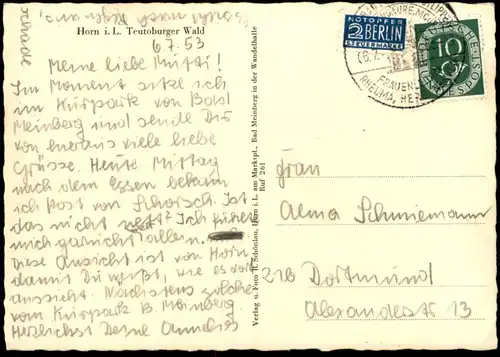 Horn i. L. Teutoburger Wald
6.7.53
Meine liebe Mutti!
Im Moment sitze ich
im Kurpark von Bad
Meinberg und sende Dir
von hieraus viele liebe
Grüsse. Heute Mittag
nach dem Essen bekam
ich Post von Schorsch. Ist
das nicht nett? Ich fühle
mich garnicht allein.
Diese Ansicht ist von Horn,
damit Du weißt, wie es dort
aussieht. Nächstens solche
vom Kurpark B. Meinberg
Herzlichst Deine Annelies
Verlag u. Foto R. Schönlau, Horn i.L. am Marktpl., Bad Meinberg in der Wandelhalle
Ruf 261
NOTOPFER
2 BERLIN
STEUERMARKE
DEUTSCHE BUNDESPOST
10
FRAUENL
RHEUMA, HER
Frau
Alma Schniemann
21b Dortmund
Alexanderstr 13